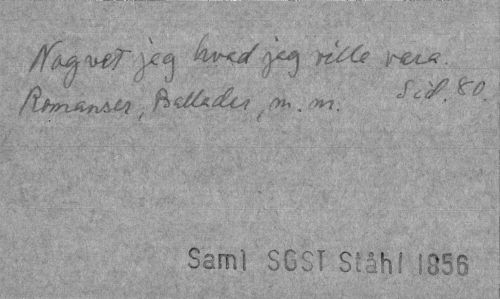 Nog vet jag hvad jag ville vara.
Romanser, Ballader, m. m. Sid. 80.
Saml SGST Ståhl 1856